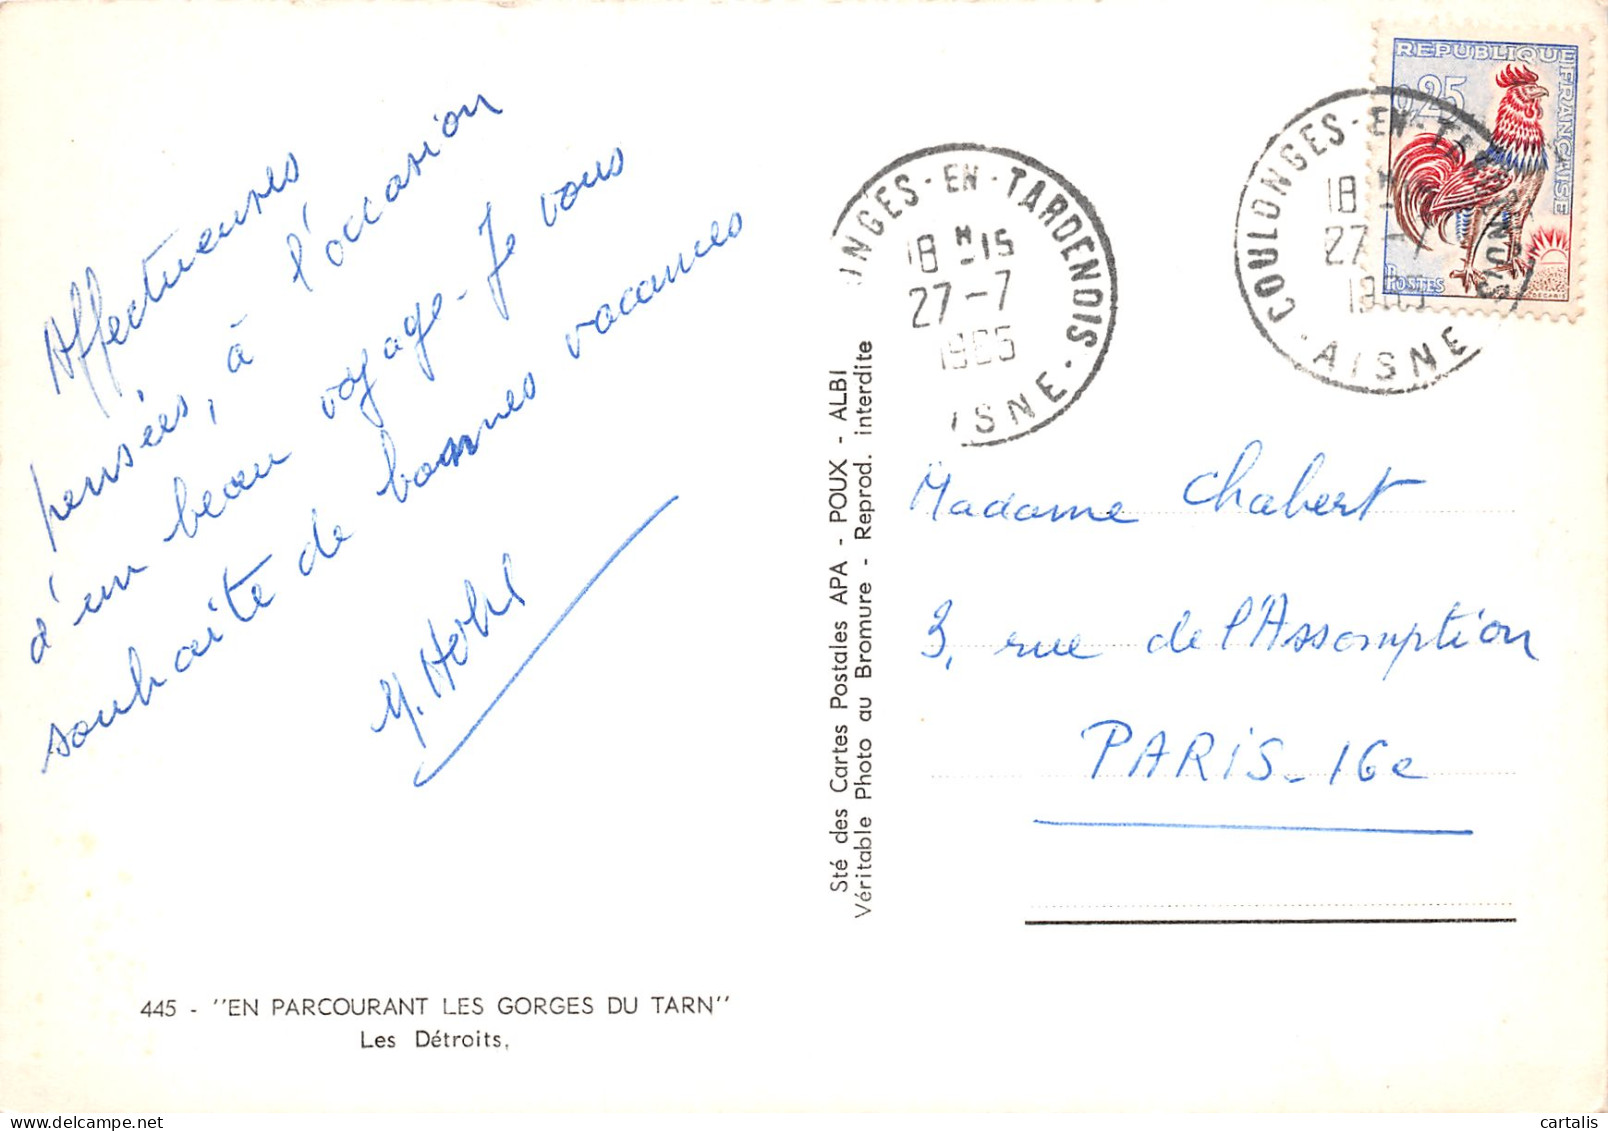 Affectueuses
pensées, à l'occasion
d'un beau voyage - Je vous
souhaite de bonnes vacances
445 - "EN PARCOURANT LES GORGES DU TARN"
Les Détroits,
Sté des Cartes Postales APA - POUX - ALBI
Véritable Photo au Bromure - Reprod. interdite
ONGES-EN-TARDENOIS
18 H-15
27-7
1965
ISNE
COULONGES-EN-TARDENOIS
18 H
27-7
1965
AISNE
REPUBLIQUE FRANÇAISE
0,25
POSTES
DECARIS
Madame Chabert
3, rue de l'Assomption
PARIS-16e
cartalis
www.delcampe.net